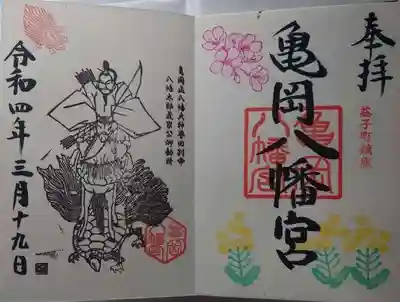 奉拝
益子町鎮座
亀岡八幡宮
亀岡
八幡宮
亀岡正八幡大神誉田別命
八幡太郎義家公御勧請
令和四年三月十九日